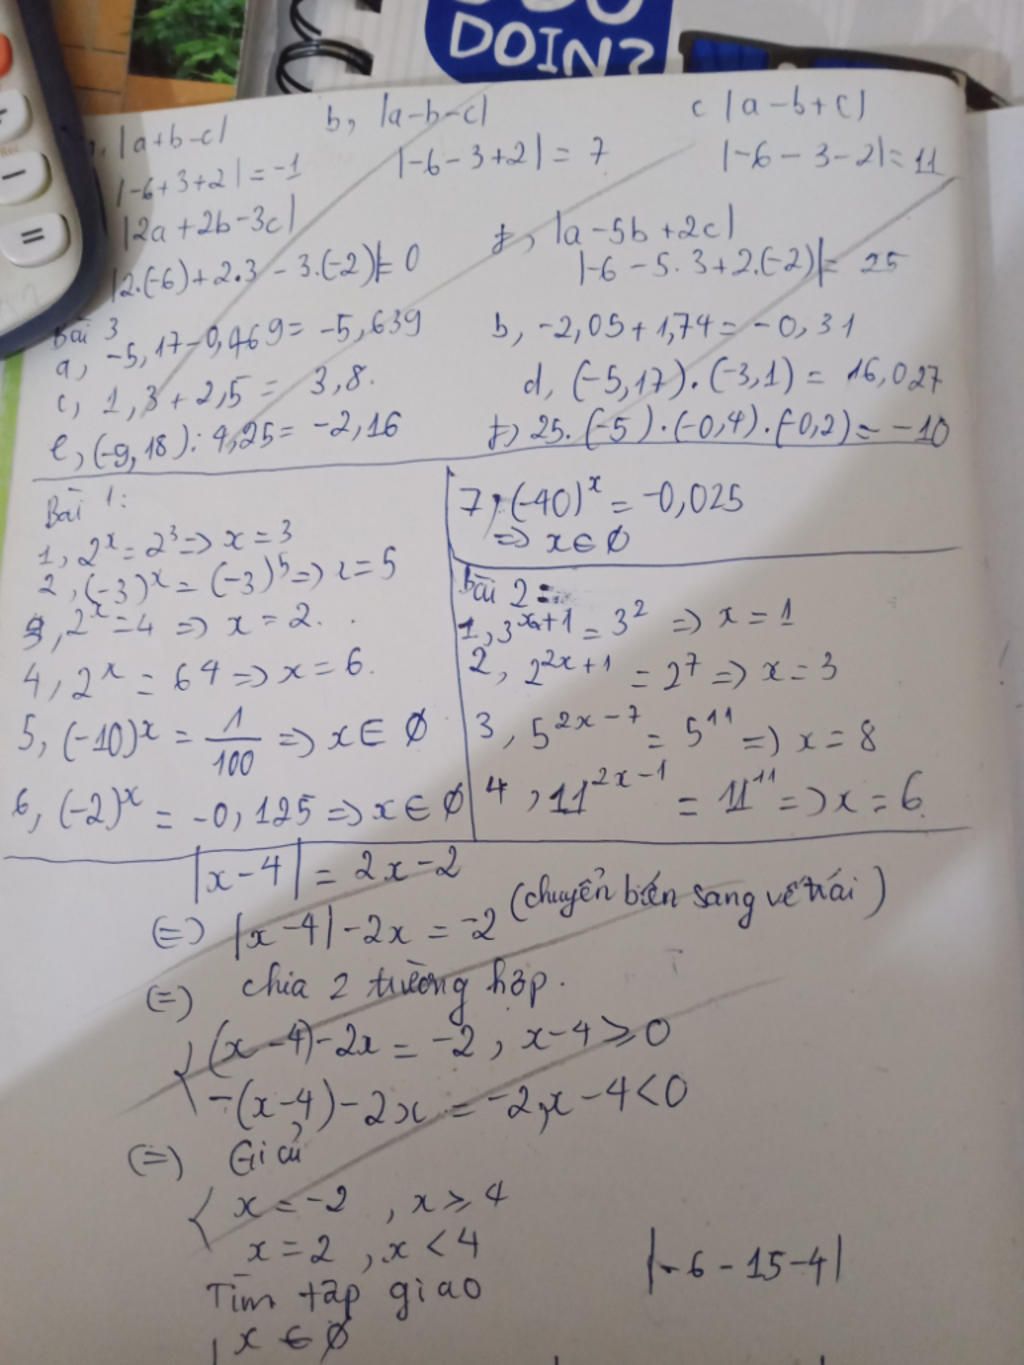 DOIN?
|a+b-c|
b, |a-b-c|
c |a-b+c|
|-6+3+2| = -1
|-6-3+2| = 7
|-6-3-2| = 11
|2a+2b-3c|
f, |a-5b+2c|
|2.(-6)+2.3-3.(-2)| = 0
|-6-5.3+2.(-2)| = 25
Bài 3
a, -5,17-0,469 = -5,639
b, -2,05+1,74 = -0,31
c, 1,3+2,5 = 3,8.
d, (-5,17).(-3,1) = 16,027
e, (-9,18):4,25 = -2,16
f, 25.(-5).(-0,4).(-0,2) = -10
Bài 1:
1, 2^x = 2^3 => x = 3
2, (-3)^x = (-3)^5 => x = 5
3, 2^x = 4 => x = 2.
4, 2^x = 64 => x = 6.
5, (-10)^x = 1/100 => x ∈ Ø
6, (-2)^x = -0,125 => x ∈ Ø
7, (-40)^x = -0,025
=> x ∈ Ø
bài 2:
1, 3^{x+1} = 3^2 => x = 1
2, 2^{2x+1} = 2^7 => x = 3
3, 5^{2x-7} = 5^{11} => x = 8
4, 11^{2x-1} = 11^{11} => x = 6.
|x-4| = 2x-2
(=) |x-4|-2x = -2 (chuyển biến sang vế trái)
(=) chia 2 trường hợp.
{ (x-4)-2x = -2, x-4 ≥ 0
-(x-4)-2x = -2, x-4 < 0
(=) Giải
{ x = -2, x ≥ 4
x = 2, x < 4
Tìm tập giao
x ∈ Ø
|-6-15-4|